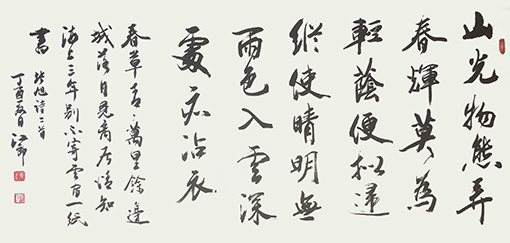 山光物態弄
春輝莫為
輕蔭便拟歸
縱使晴明無
雨色入雲深
處亦沾衣
春草青青萬里餘邊
城落日見离居情知
海上三年別不寄雲間一紙
書 張旭詩二首
丁酉夏日